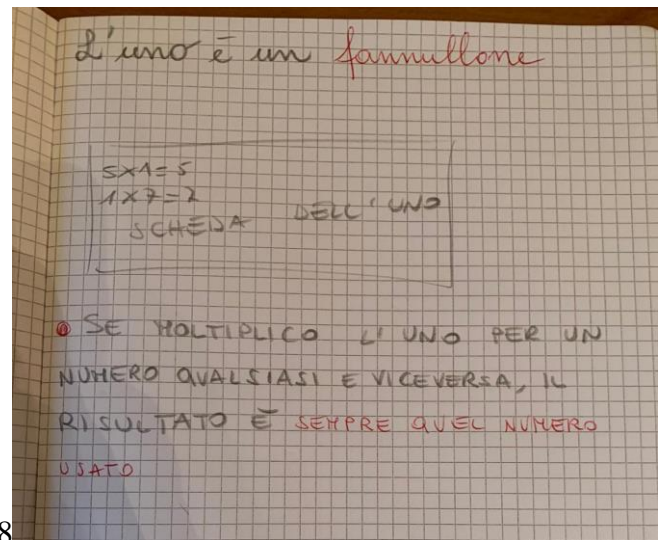 L'uno è un fannullone
5x1=5
1x7=7
SCHEDA DELL'UNO
SE MOLTIPLICO L'UNO PER UN
NUMERO QUALSIASI E VICEVERSA, IL
RISULTATO È SEMPRE QUEL NUMERO
USATO
8